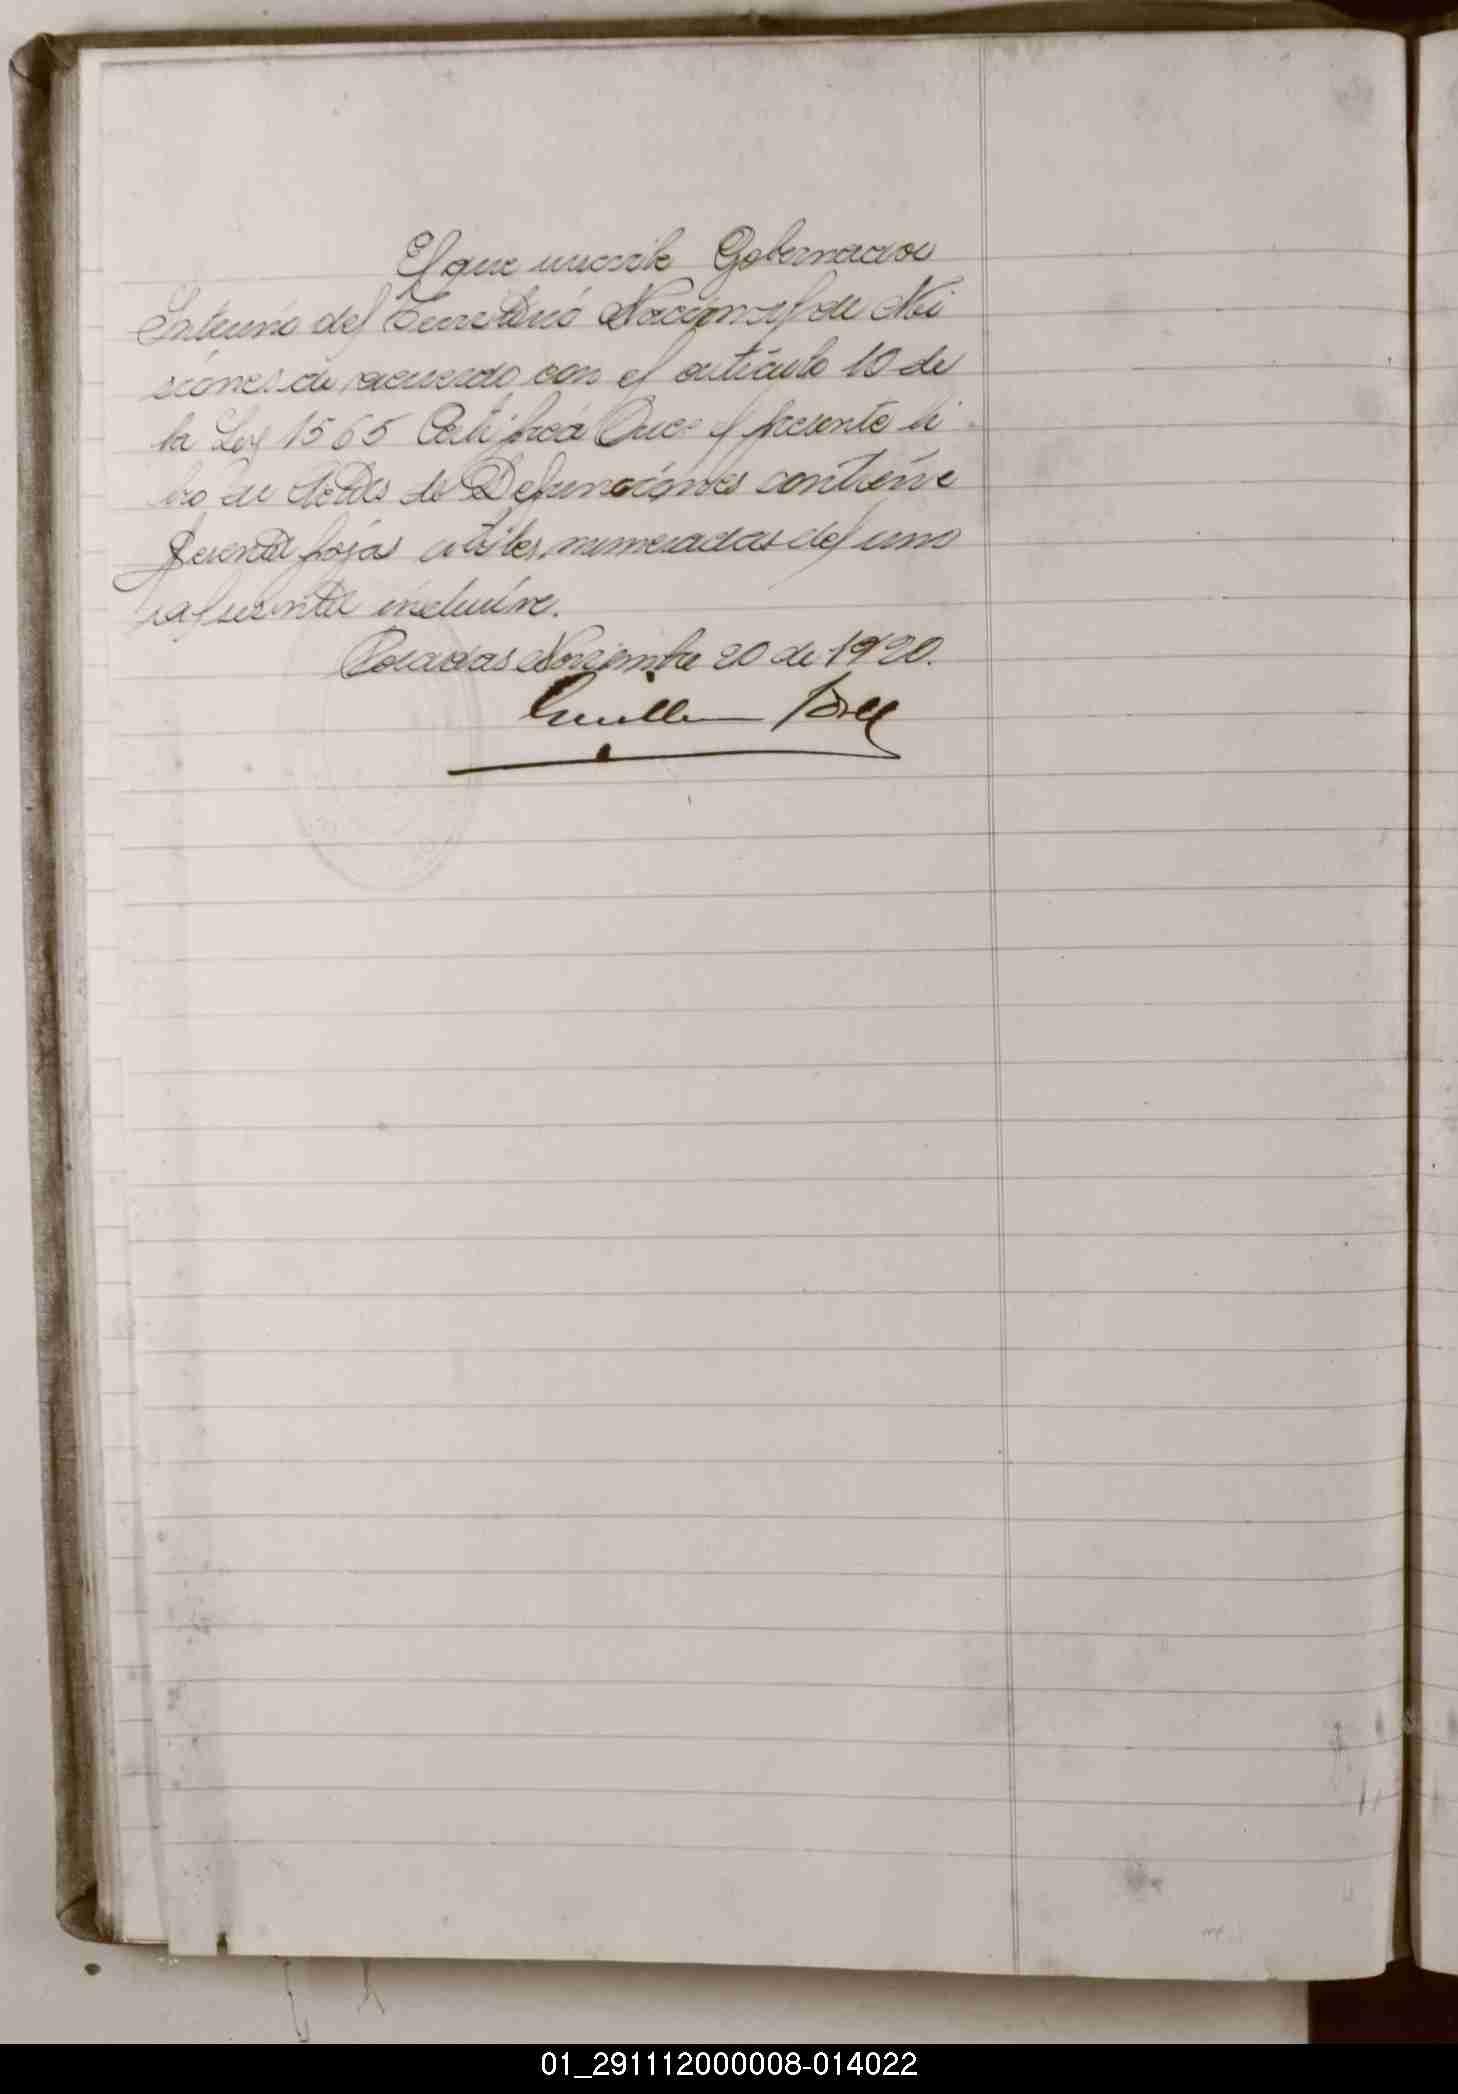 El que suscribe Gobernador
Interino del Territorio Nacional de Mi
siones de acuerdo con el artículo 10 de
la Ley 1565 Certifica Que: el presente li
bro de Actas de Defunciones contiene
hojas utiles, numeradas del uno
al inclusive.
Posadas Noviembre 20 de 1920.
Guillermo
01_291112000008-014022